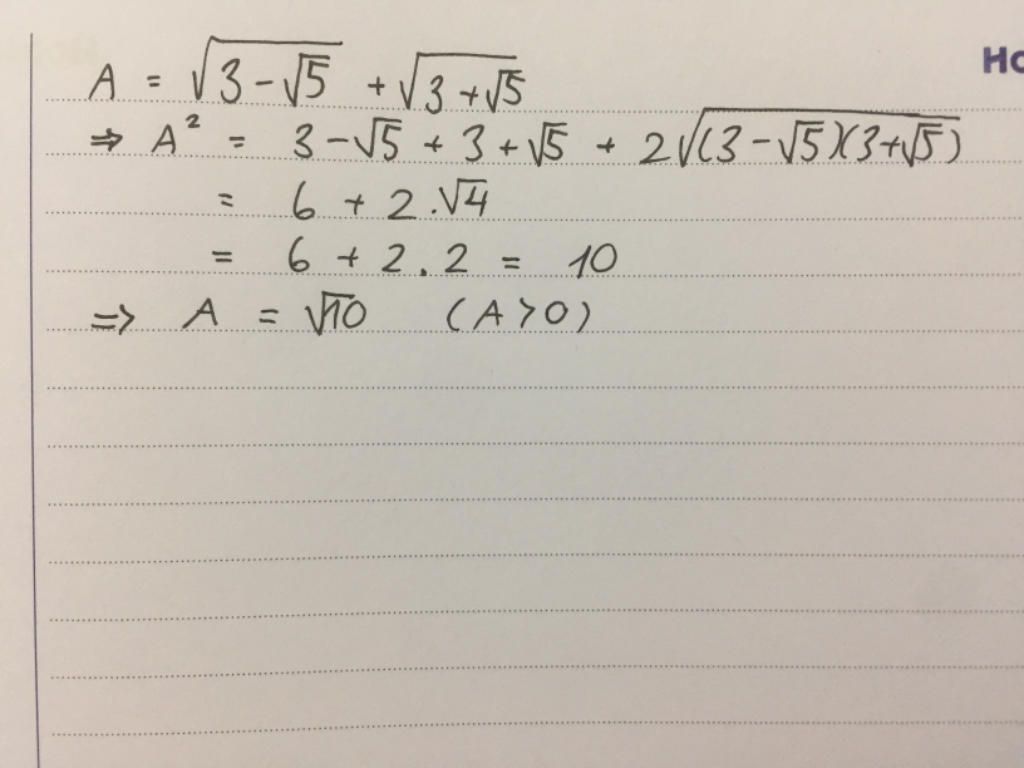 Ho
A = √(3 - √5) + √(3 + √5)
⇒ A² = 3 - √5 + 3 + √5 + 2√((3 - √5)(3 + √5))
= 6 + 2.√4
= 6 + 2.2 = 10
=> A = √10 (A > 0)